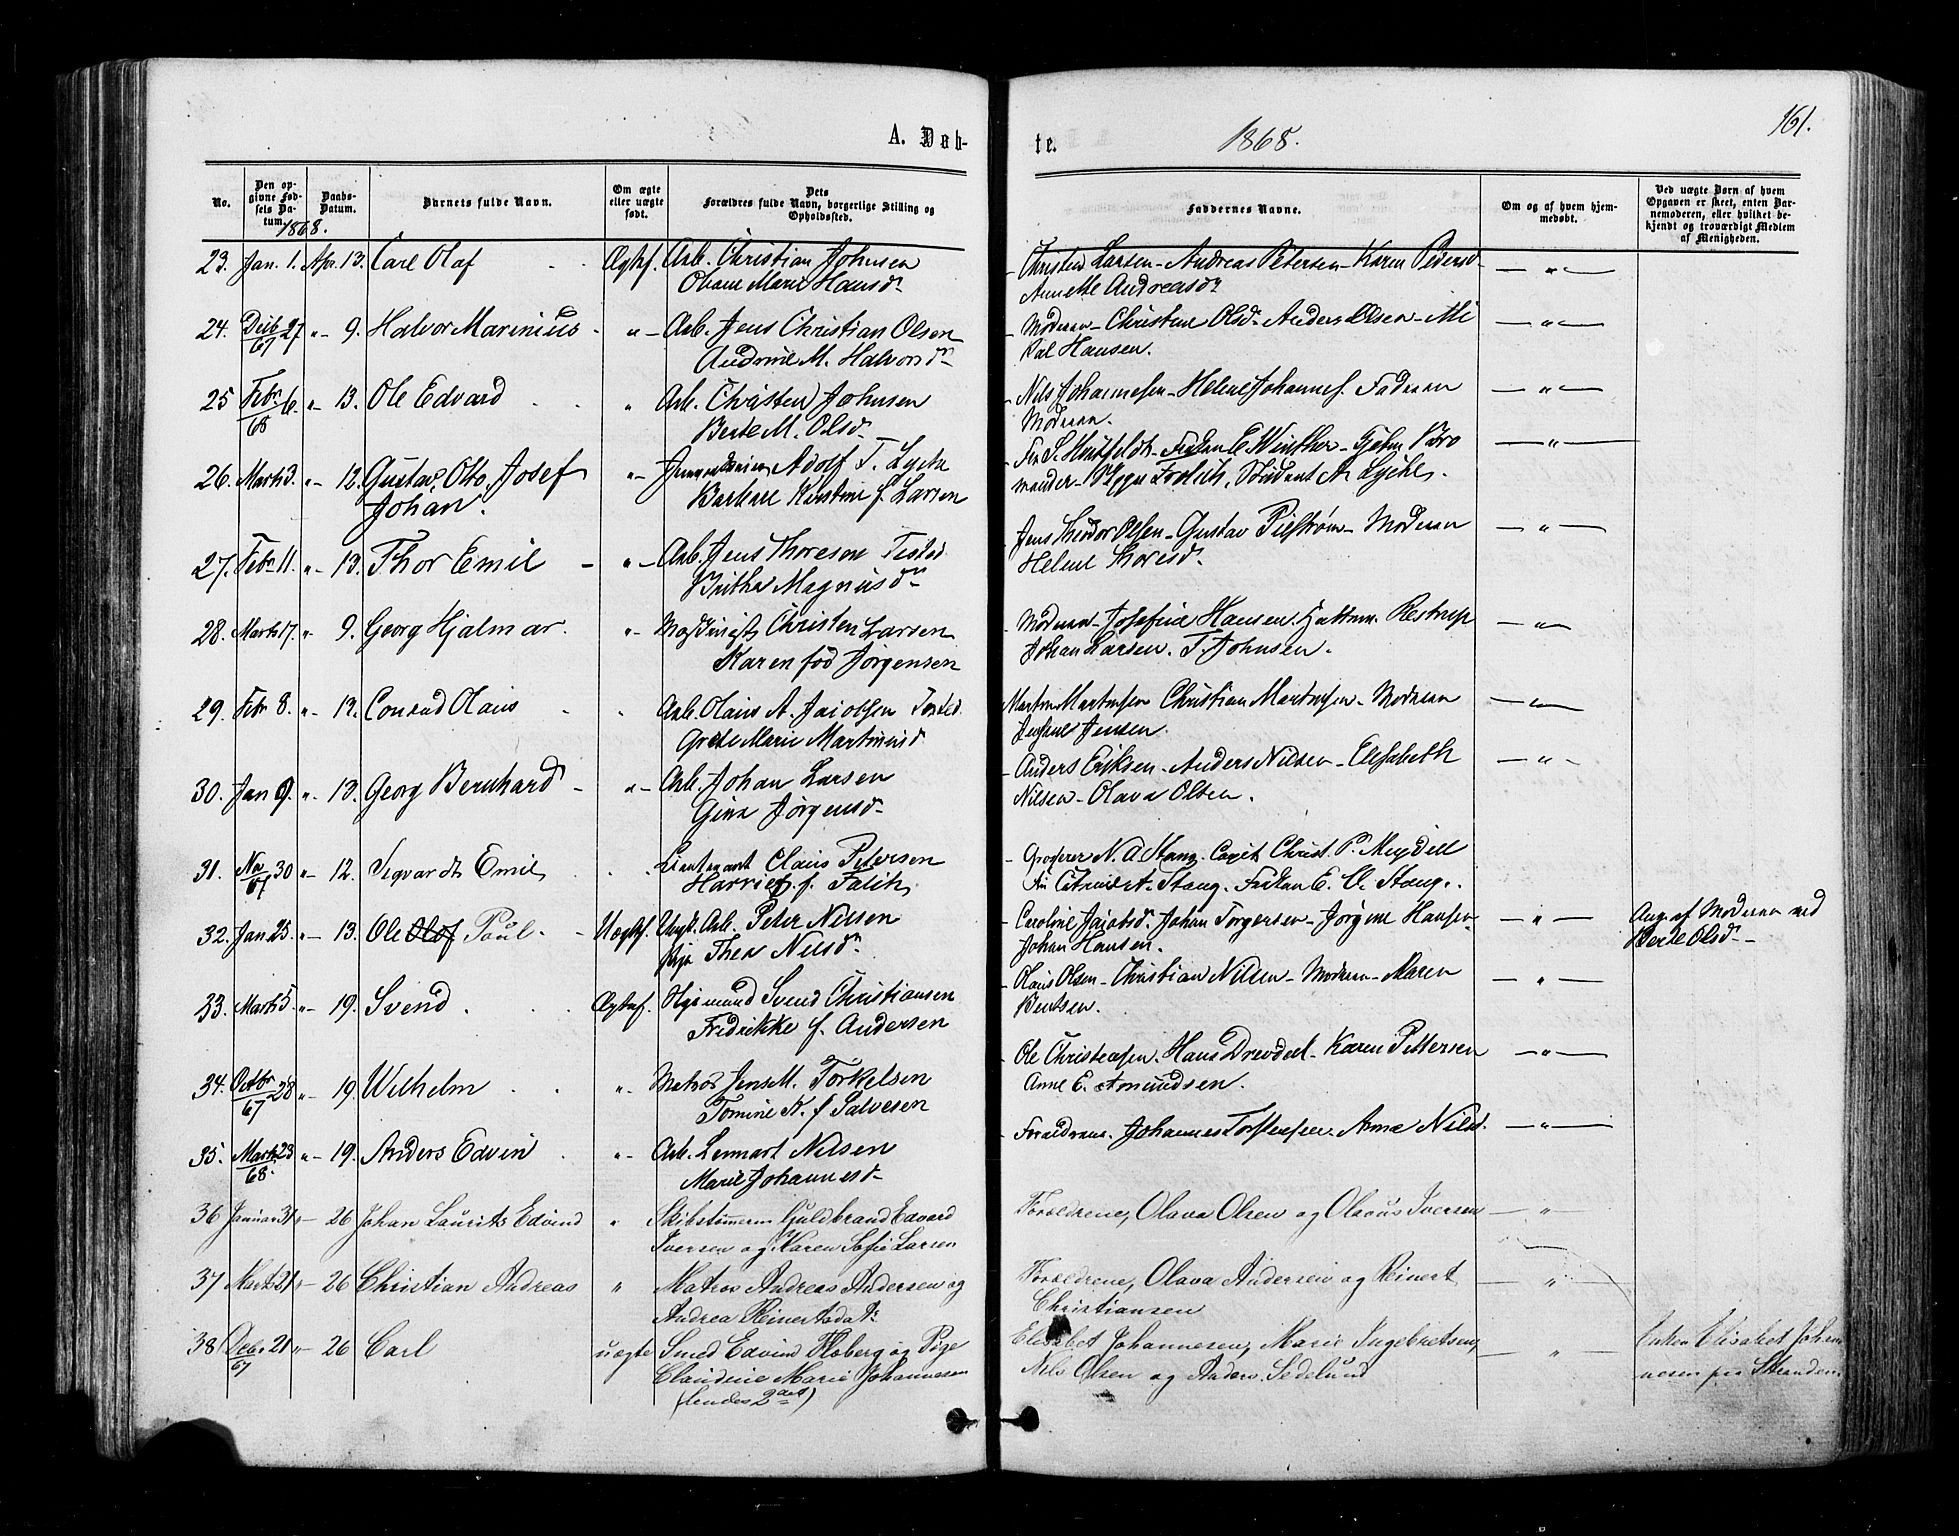 A. Dåb-
te.
1868.
161.
No.
Den op-
givne Fød-
sels Da-
tum.
1868.
Daabs-
Datum.
Barnets fulde Navn.
Om ægte
eller uægte
født.
Dets
Forældres fulde Navn, borgerlige Stilling og
Opholdssted.
Faddernes Navne.
Om og af hvem hjem-
medøbt.
Ved uægte Børn af hvem
Opgaven er skeet, enten Bar-
nemoderen, eller hvilket be-
kjendt og troværdigt Medlem
af Menigheden.
23. Jan. 1. Apr. 13. Carl Olaf Ægtef. Arb. Christian Johnsen
Olava Marie Hansd.
Christen Larsen - Andreas Petersen - Karen Pedersd.
Annette Andreasdr — „ —
24. Decb 27/67 „ - 9. Halvor Marinius - „ - Arb. Jens Christian Olsen
Andrine M. Halvorsdr
Moderen - Christine Olsd. - Anders Olsen - Mi
kal Hansen. — „ —
25 Febr. 6./68 „ - 13. Ole Edvard „ Arb. Christen Johnsen
Berte M. Olsd.
Nils Johannesen - Helene Johannes. Faderen
Moderen. — „ —
26. Marts 3. „ - 12. Gustav Otto Josef
Johan. „ - Adolf T. Lyche
Barbara Kirstine f. Larsen
Winther -
Student A. Lyche. — „ —
27. Febr 11. „ - 13. Thor Emil - „ - Arb. Jens Thoresen Tisted
Britha Magnusdr
Jens Theodor Olsen - Gustav Pilstrøm - Moderen
Helene Thoresd. — „ —
28. Marts 17. „ - 9. Georg Hjalmar. „ - Maskinist Christen Larsen
Karen fød Jørgensen
Moderen - Josefine Hansen. Restrup
Johan Larsen. T. Johnsen. — „ —
29. Febr 8. „ - 12. Conrad Olaus Arb. Olaus A. Jacobsen Tisted
Grete Marie Martinusd
Martin Martinsen Christian Martinsen - Moderen
Jensen. — „ —
30. Jan 9. „ - 13. Georg Bernhard - „ - Arb. Johan Larsen
Gina Jørgensd.
Anders Eriksen - Anders Nilsen - Elisabeth
Nilsen - Olava Olsen. — „ —
31. No 30/67 „ - 12. Sigvardt Emil Lieutenant Claus Petersen
Harriet f. Falck
Grosserer N. A. Stang. Capit. Christ. P.
Stang. Frøken E. C. Stang.
32. Jan 25. „ - 13. Ole Olof Paul. - Uægtef. Ungk. Arb. Peter Nilsen
Pige Thea Nilsdr
Caroline Jacobsd. Johan Torgersen - Jørgine Hansen
Johan Hansen. — „ — Ang. af Moderen ved
Berte Olsd -
33. Marts 5 „ - 19. Svend Ægtef. Svend Christiansen
Fredrikke f. Andersen
Olaus Olsen - Christian Nilsen - Moderen - Maren
Bentsen. — „ —
34. Octbr 28/67 „ - 19. Wilhelm „ - Matros Jens M. Torkelsen
Tomine K. f Salvesen
Ole Christensen. Hans Drevdeel - Karen Pettersen
Anne E. Amundsen. — „ —
35. Marts 23/68. „ - 19. Anders Edvin „ - Arb. Lennart Nilsen
Marie Johannesd
Forældrene. Johannes Torstensen. Anne Nilsd. — „ —
36 Januar 31 „ - 26 Johan Laurits Edvind „ Skibstømmerm. Guldbrand Edvard
Iversen og Karen Sofie Larsen
Forældrene, Olava Olsen og Olaus Iversen — „ —
37 Marts 21 „ - 26 Christian Andreas „ Matros Andreas Andersen og
Andrea Reinertsdatr
Forældrene, Olava Andersen og Reinert
Christiansen — „ —
38 Debr 21/67 „ - 26 Carl uægte Smed Edvind Floberg og Pige
Claudine Marie Johannesen
(bendes 2det)
Elisabet Johannesen, Marie Ingebretsen,
Nils Olsen og Anders Sedelund — „ — Enken Elisabet Johan
nesen paa Stranden